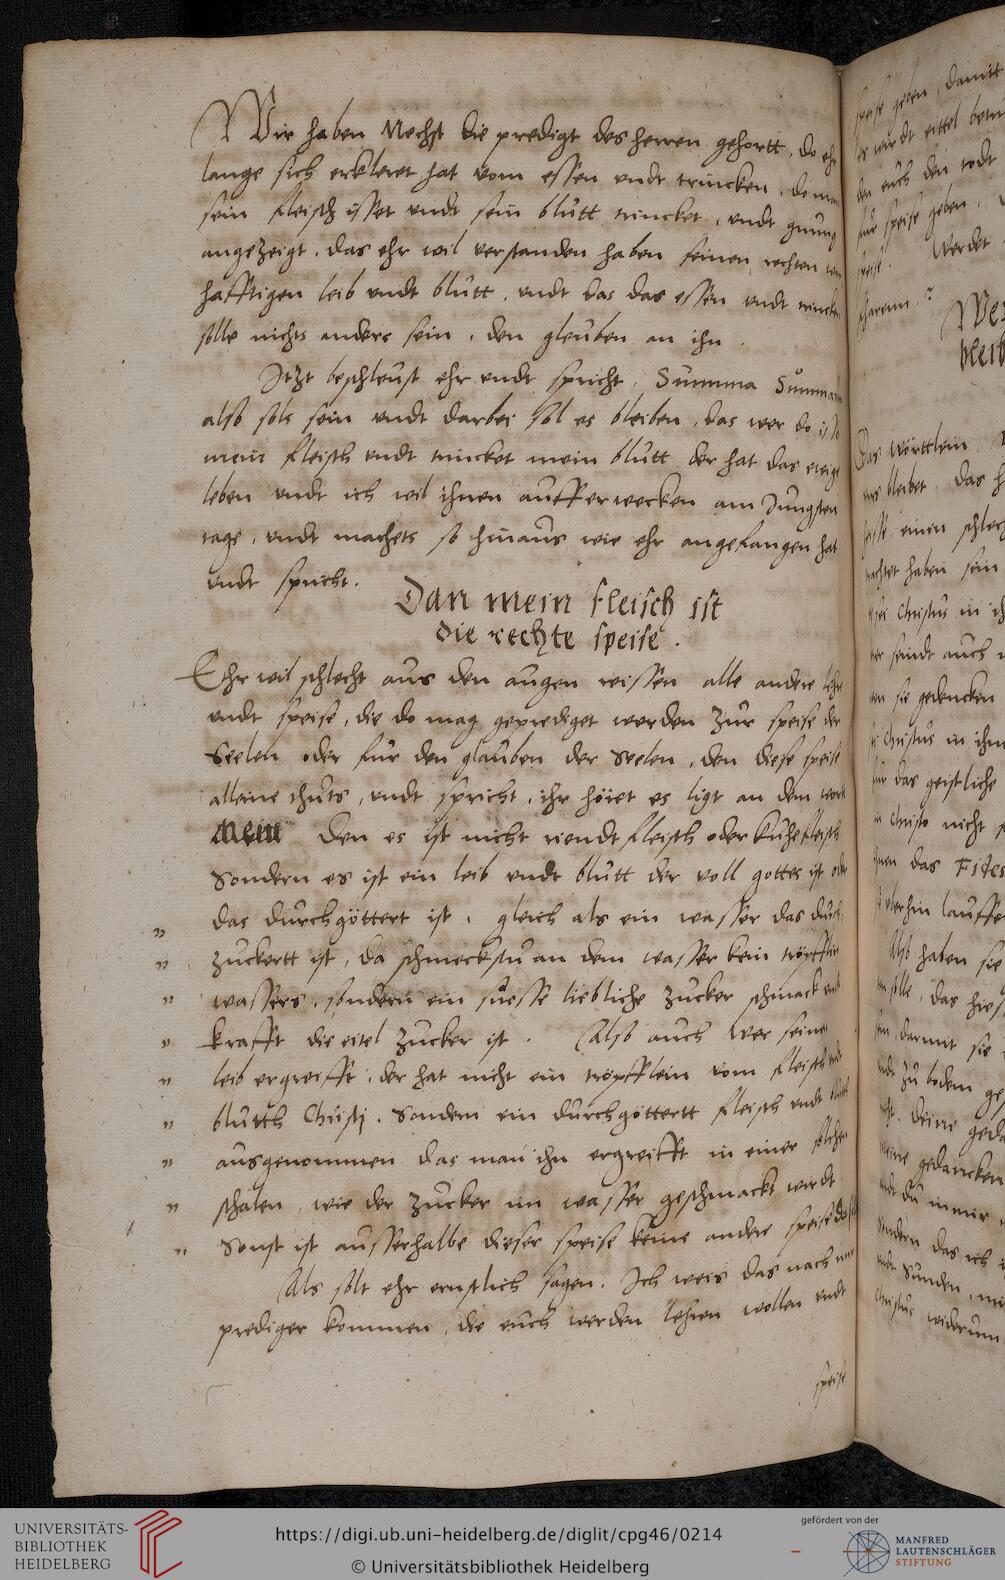 Wir haben Nechst die predigt des herren gehortt, do ehr
lange sich erkleret hat vom essen vndt trincken, do man
sein fleisch isset vndt sein blutt trincket, vndt gnung
angezeigt, das ehr wil verstanden haben seinen rechten
hafftigen leib vndt blutt, vndt das das essen vndt trincken
solle nichts anders sein, den gleuben an ihn.
Itzt beschleust ehr vndt spricht, Summa Summarum
also sols sein vndt darbei sol es bleiben, das wer do isset
mein fleisch vndt trincket mein blutt der hat das ewige
leben vndt ich wil ihnen aufferwecken am Jungsten
tage, vndt machets so hinaus wie ehr angefangen hat
vndt spricht.
Dan mein fleisch ist
die rechte speise.
Ehr wil schlecht aus den augen reissen alle andere lehr
vndt speise, die do mag geprediget werden zur speise der
Seelen oder fur den glauben der Seelen, den diese speise
alleine thuts, vndt spricht, ihr höret es ligt an dem wort
Mein Den es ist nicht riendtfleisch oder kuhefleisch
Sondern es ist ein leib vndt blutt der voll gottes ist oder
„ das durchgöttert ist, gleich als ein wasser das durch
„ zuckertt ist, da schmeckstu an dem wasser kein tröpfflin
„ wassers, sondern ein suesse liebliche zucker schmack vndt
„ krafft die eitel zucker ist. Also auch wer seinen
„ leib ergreifft, der hat nicht ein tröpfflein vom fleisch vndt
„ blutth Christj, Sondern ein durchgöttertt fleisch vndt blutth
„ ausgenommen das man ihn ergreifft in einer solchen
„ schalen, wie der zucker im wasser geschmackt wirdt
„ Sonst ist ausserhalbe dieser speise keine andere speise
Als solt ehr ernstlich sagen, Ich weis das nach mir
prediger kommen, die euch werden lehren wollen vndt
speise
speise geben, damitt
es wirdt eittel
den euch den todt
fur speise geben,
speise. Werdet
Das wörttlein
bleibet, das
einen schlech
haben sein
Christus in
seindt auch
sie gedencken
Christus in ihm
das geistliche
Christo nicht
das Fides
hin lauffe
Also haben sie
solle, das
darmit sie
zu bodem
Deine
gedancken
du in mir
sondern das ich
Sunden,
Christus widerum
UNIVERSITÄTS-
BIBLIOTHEK
HEIDELBERG
https://digi.ub.uni-heidelberg.de/diglit/cpg46/0214
© Universitätsbibliothek Heidelberg
gefördert von der
MANFRED
LAUTENSCHLÄGER
STIFTUNG